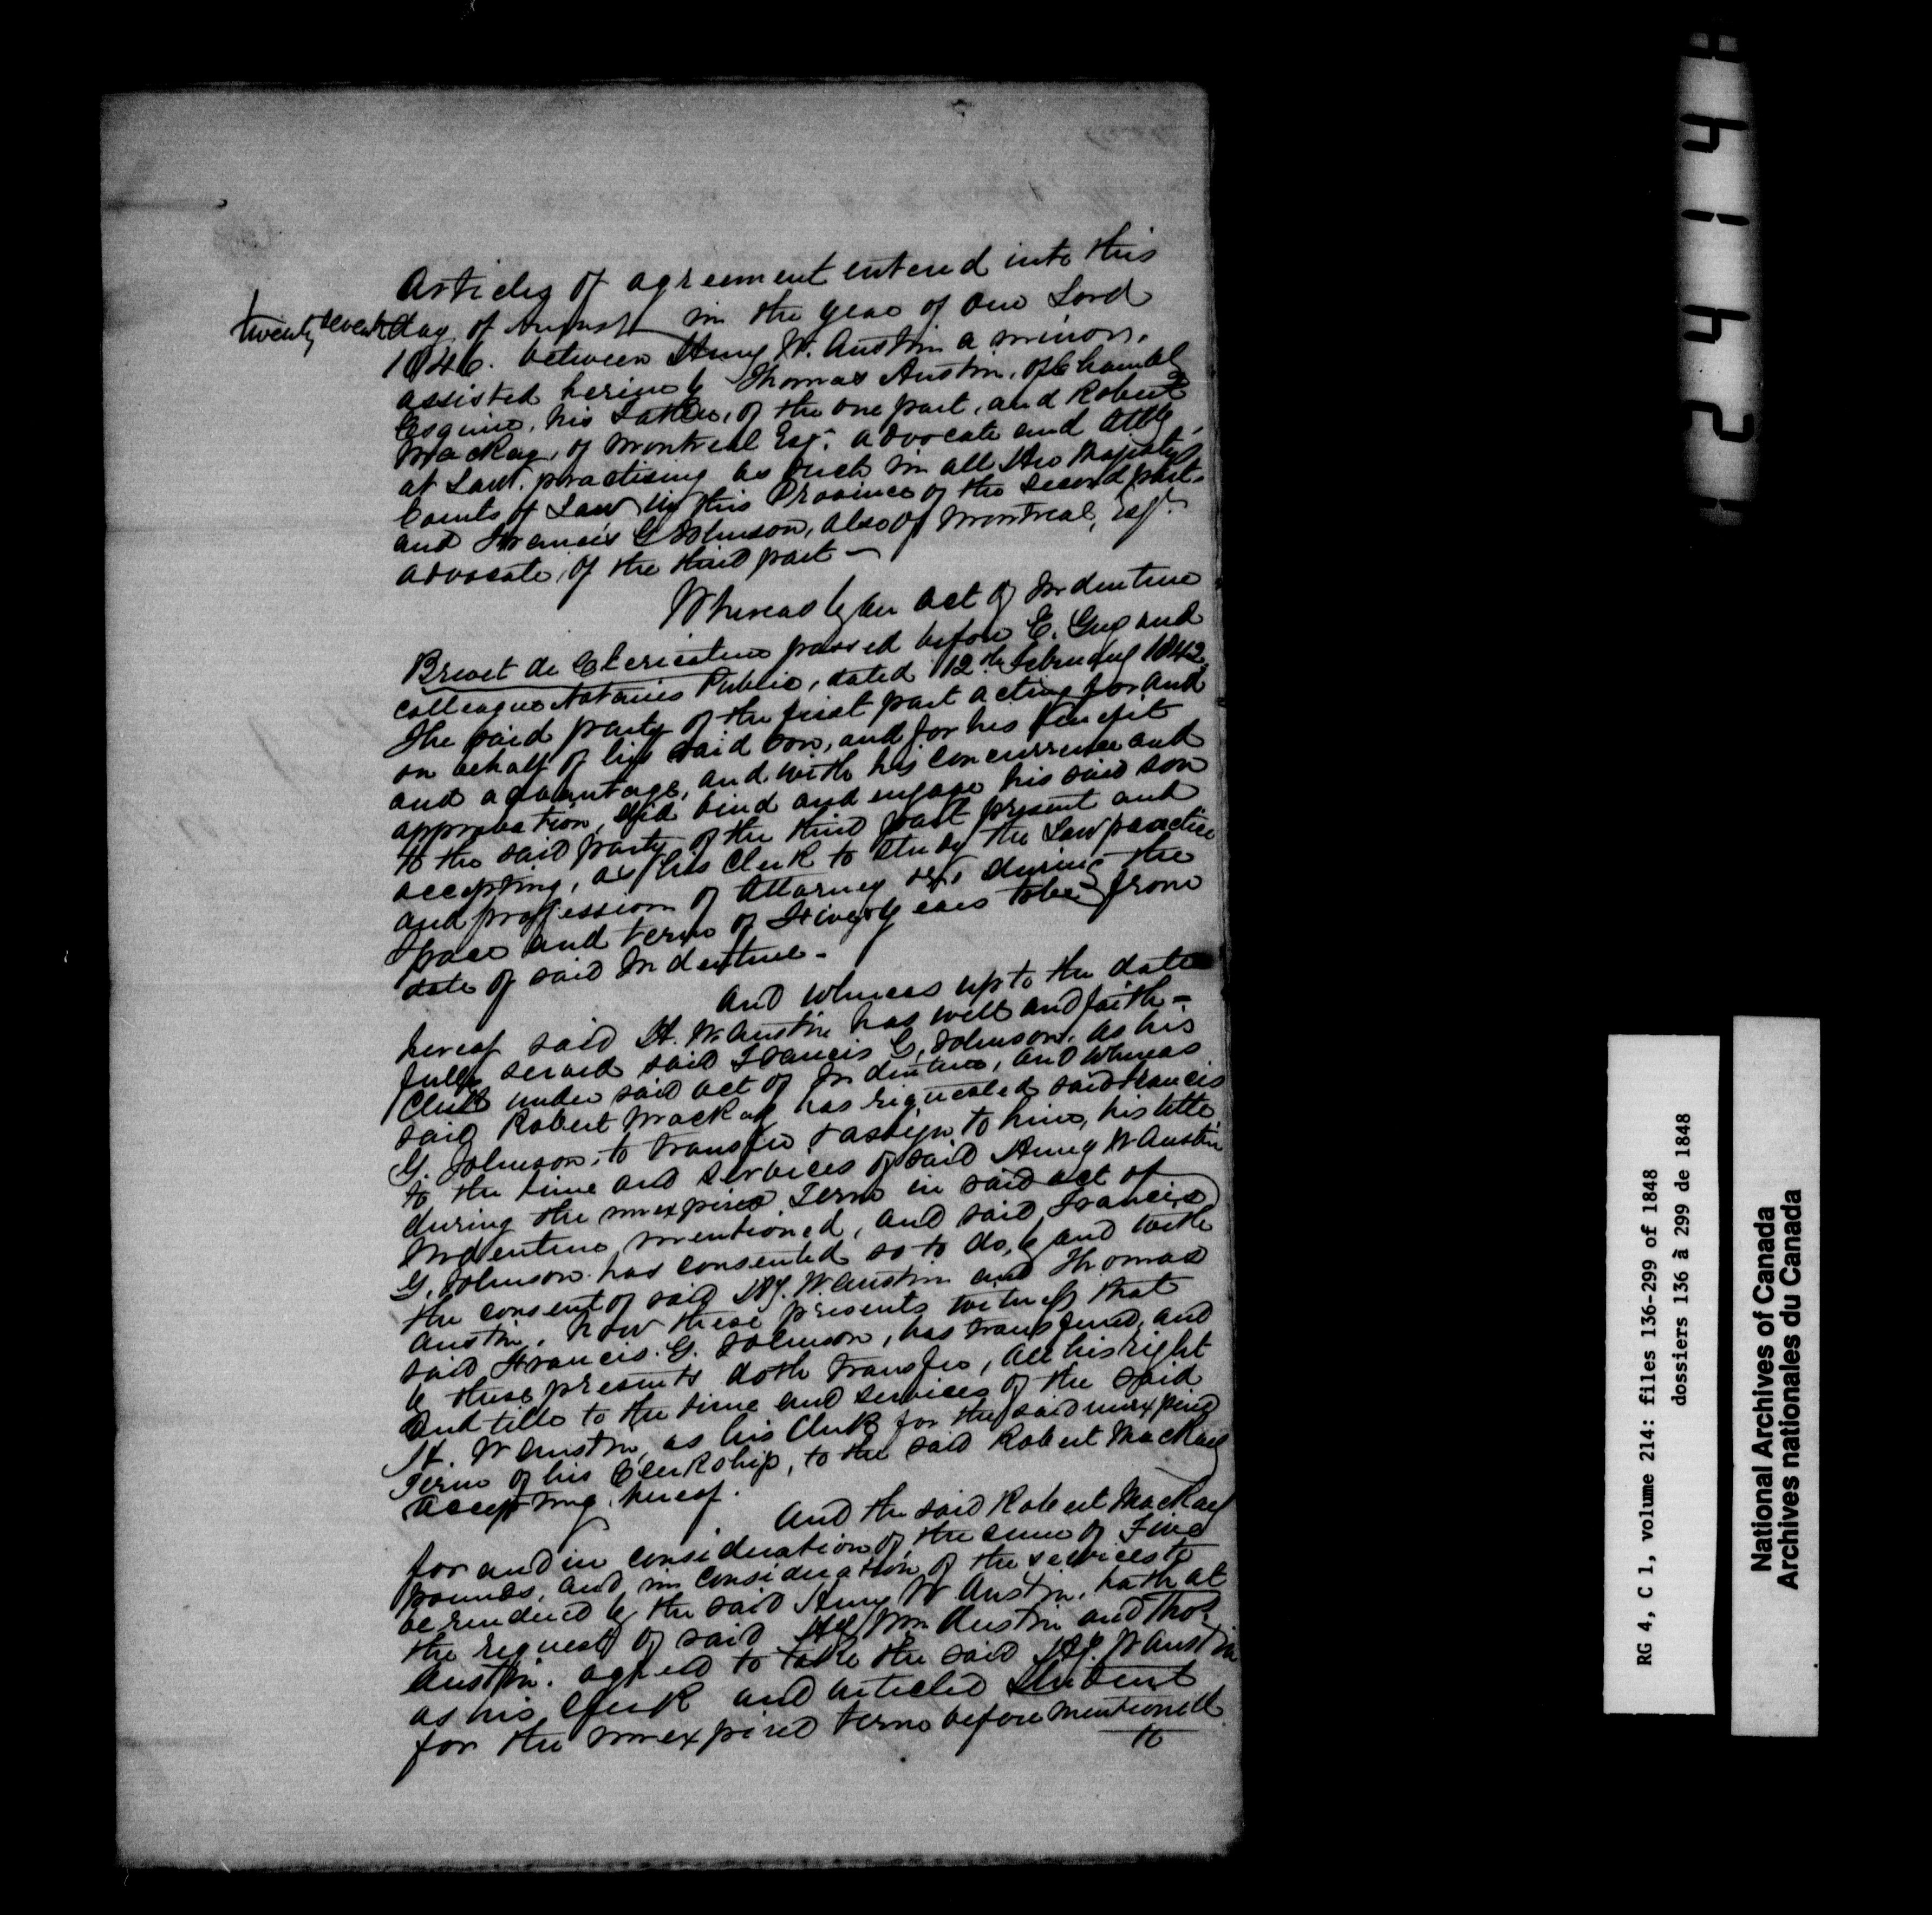 Articles of agreement entered into this
twenty seventh day of August in the year of our Lord
1846. between Henry W. Austin a minor,
assisted herein by Thomas Austin, of Chambly
Esquire, his Father, of the one part, and Robert
Mackay, of Montreal Esqr. advocate and Atty
at Law. practising as such in all Her Majesty's
Courts of Law in this Province of the second part.
and Francis G Johnson, also of Montreal, Esqr.
advocate, of the third part —
Whereas by an act of Indenture
Brevet de Clericature passed before E. Guy and
colleague Notaries Public, dated 12th February 1842,
the said party of the first part acting for and
on behalf of his said son, and for his benefit
and advantage, and with his concurrence and
approbation, did bind and engage his said son
to the said party of the third part present and
accepting, as his Clerk to study the Law practice
and profession of Attorney &c. during the
space and term of Five years to be from
date of said Indenture -
And whereas up to the date
hereof said H. W. Austin has well and faith-
fully served said Francis G. Johnson, as his
Clerk under said act of Indenture, and whereas
said Robert Mackay has requested said Francis
G. Johnson, to transfer & assign to him, his title
to the time and services of said Henry W Austin
during the unexpired Term in said act of
Indenture mentioned, and said Francis
G. Johnson has consented so to do, by and with
the consent of said Hy. W. Austin and Thomas
Austin. Now these presents witness that
said Francis. G. Johnson, has transferred, and
by these presents doth transfer, all his right
and title to the time and services of the said
H. W Austin, as his Clerk for the said unexpired
Term of his Clerkship, to the said Robert Mackay
accepting hereof.
And the said Robert Mackay
for and in consideration of the sum of Five
pounds, and in consideration of the services to
be rendered by the said Henry W Austin, hath at
the request of said Hy Wm Austin and Thos.
Austin. agreed to take the said Hy. W Austin
as his Clerk and articled Student
for the unexpired term before mentioned
to
4142
RG 4, C 1, volume 214: files 136-299 of 1848
dossiers 136 à 299 de 1848
National Archives of Canada
Archives nationales du Canada